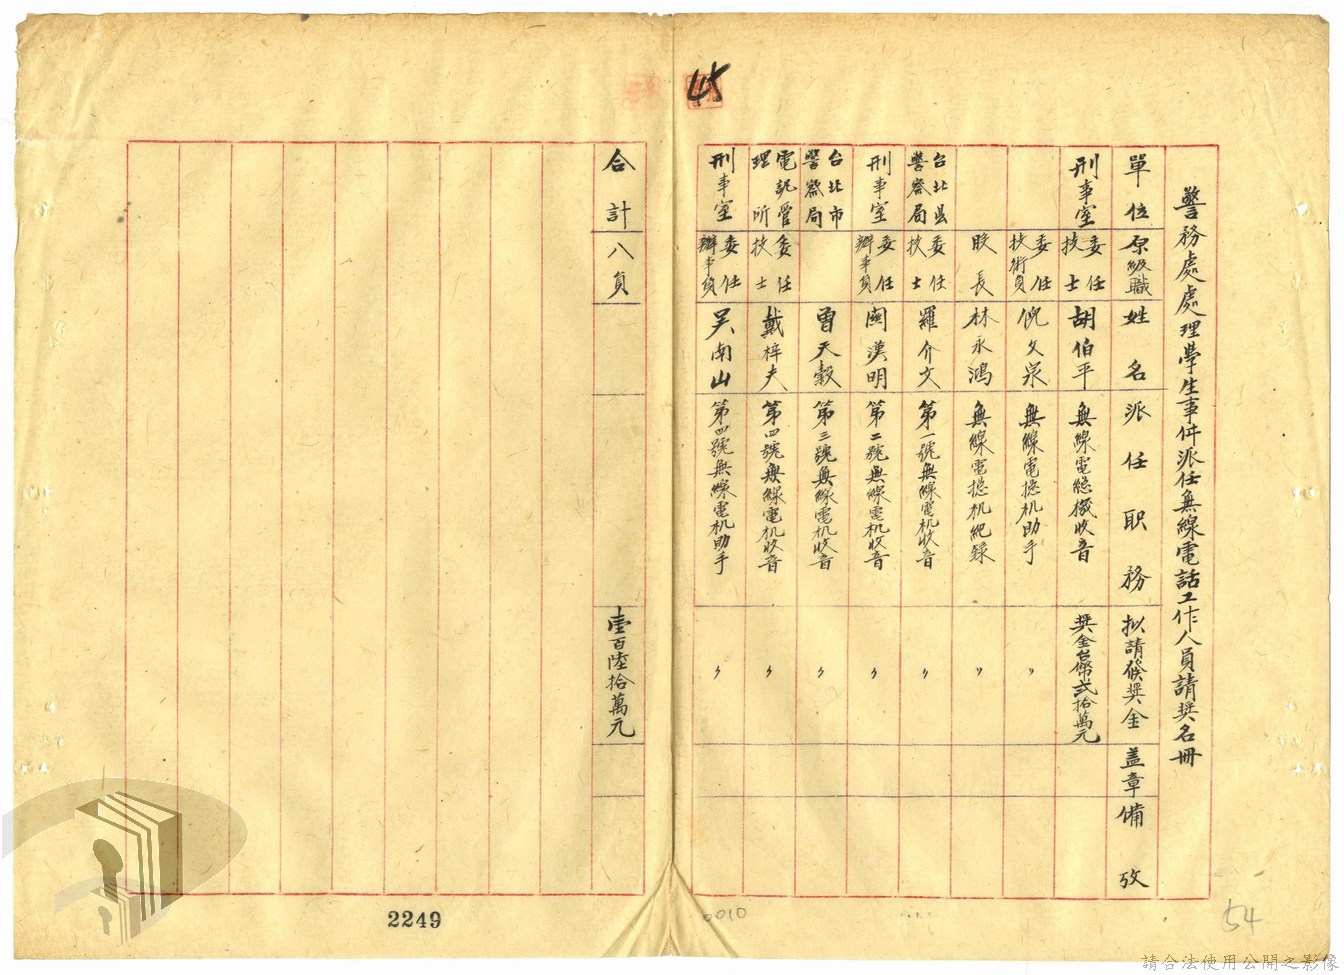 45
警務處處理學生事件派任無線電話工作人員請獎名冊
單位 原級職 姓名 派任职務 拟請發奬金 盖章 備攷
刑事室 委任技士 胡伯平 無線電總機收音 奬金台幣弍拾萬元
委任技術員 倪文泉 無線電總机助手 〃
股長 林永鴻 無線電總机紀録 〃
台北县警察局 委任技士 羅介文 第一號無線電机收音 〃
刑事室 委任辦事員 閩漢明 第二號無線電机收音 〃
台北市警察局 曾天毅 第三號無線電机收音 〃
電訊管理所 委任技士 戴梓夫 第四號無線電机收音 〃
刑事室 委任辦事員 吴南山 第四號無線電机助手 〃
合計 八員 壹百陸拾萬元
2249
0010
54
請合法使用公開之影像